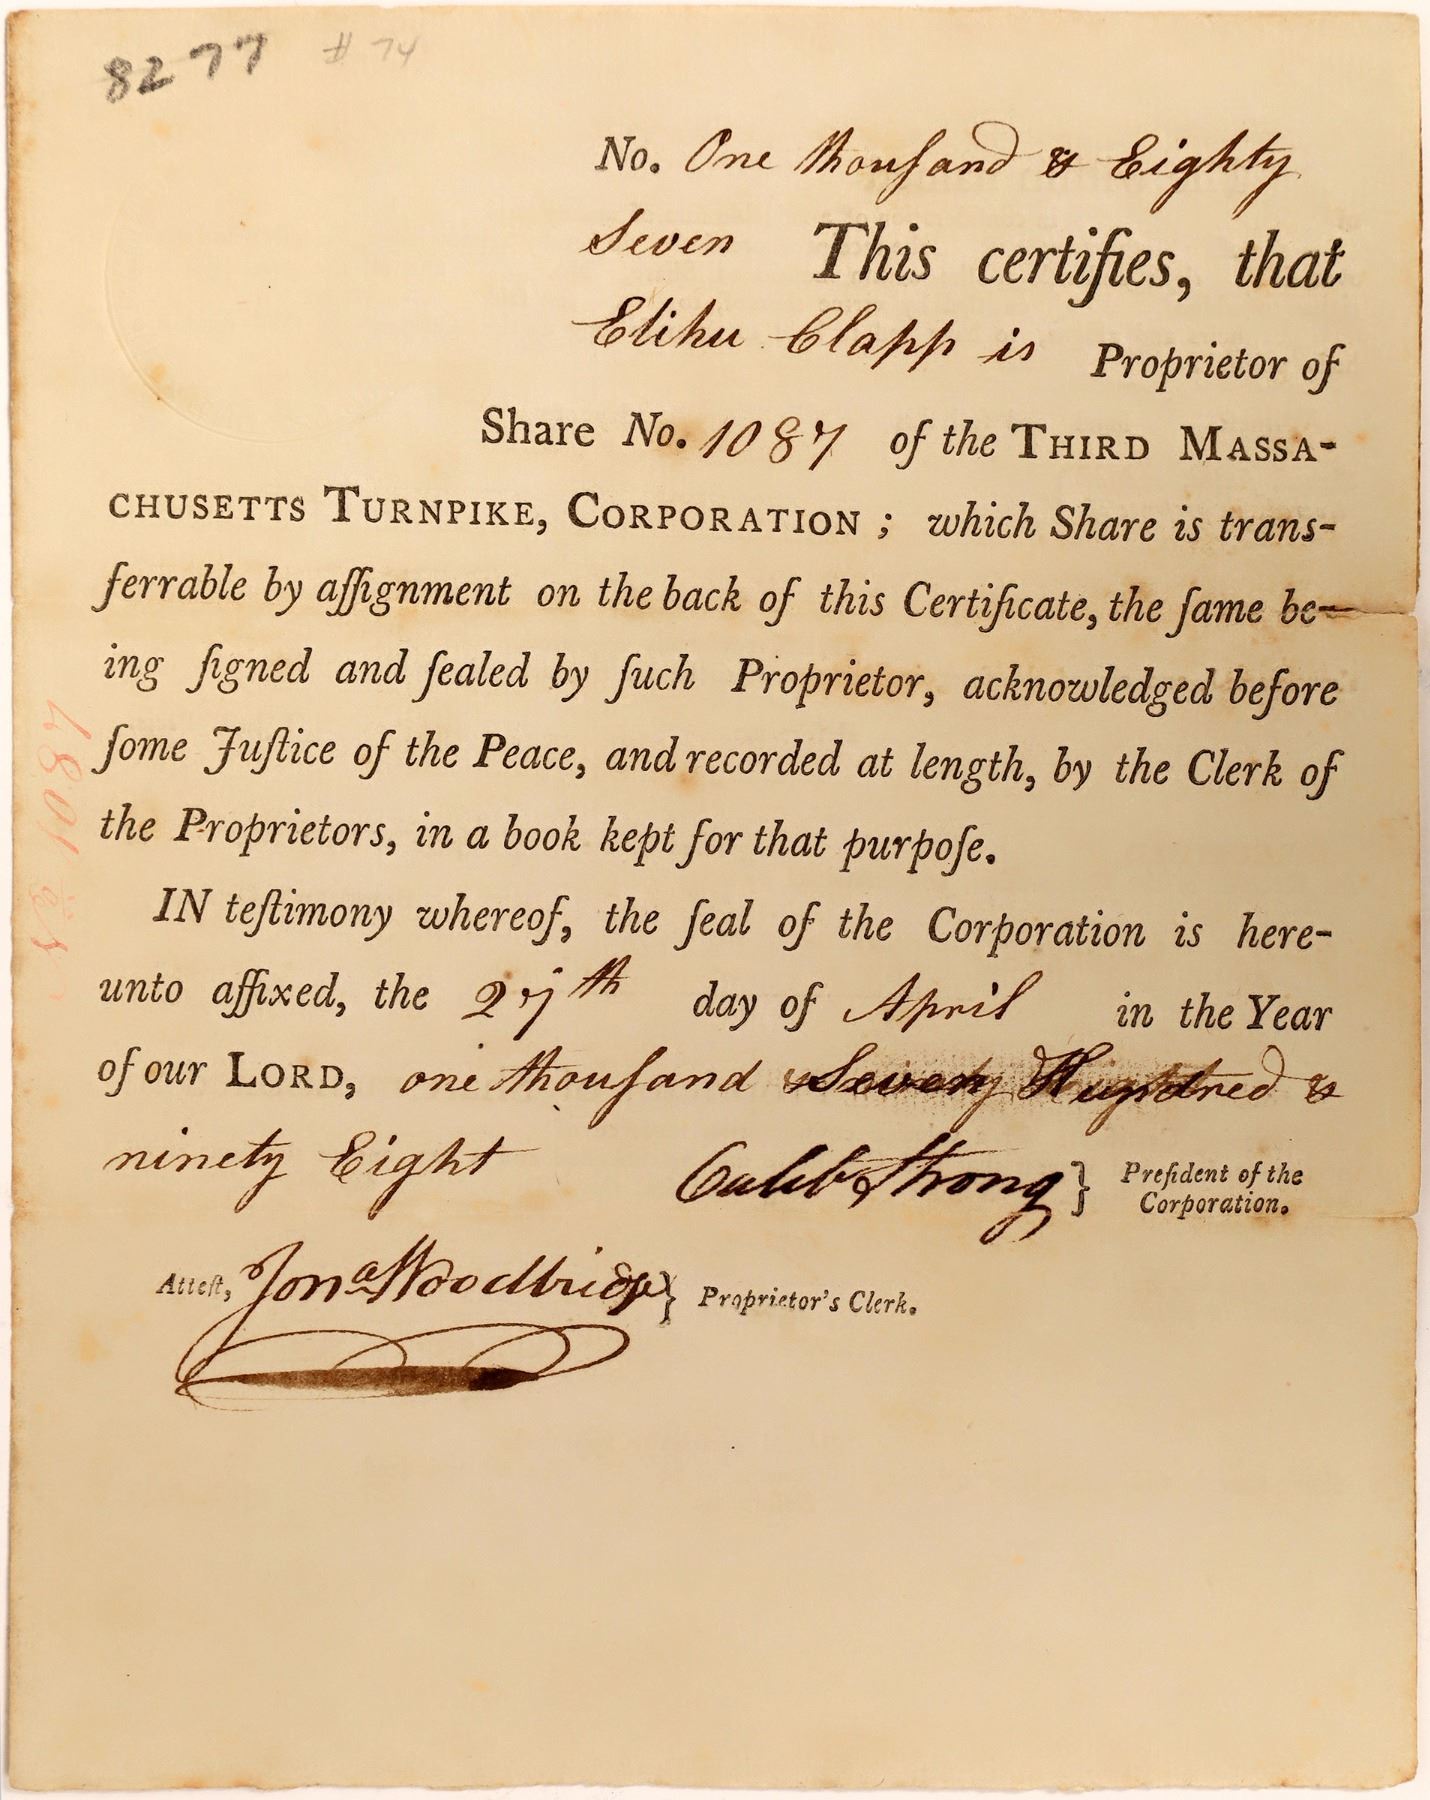 8277 # 74
No. One thouſand & Eighty
Seven This certifies, that
Elihu Clapp is Proprietor of
Share No. 1087 of the THIRD MASSA-
CHUSETTS TURNPIKE, CORPORATION ; which Share is trans-
ferrable by aſſignment on the back of this Certificate, the ſame be-
ing ſigned and ſealed by ſuch Proprietor, acknowledged before
ſome Juſtice of the Peace, and recorded at length, by the Clerk of
the Proprietors, in a book kept for that purpoſe.
IN teſtimony whereof, the ſeal of the Corporation is here-
unto affixed, the 27th day of April in the Year
of our LORD, one thouſand Seven Hundred &
ninety Eight
Caleb Strong } Preſident of the
Corporation.
Atteſt, Jona Woodbridge } Proprietor's Clerk.
1087